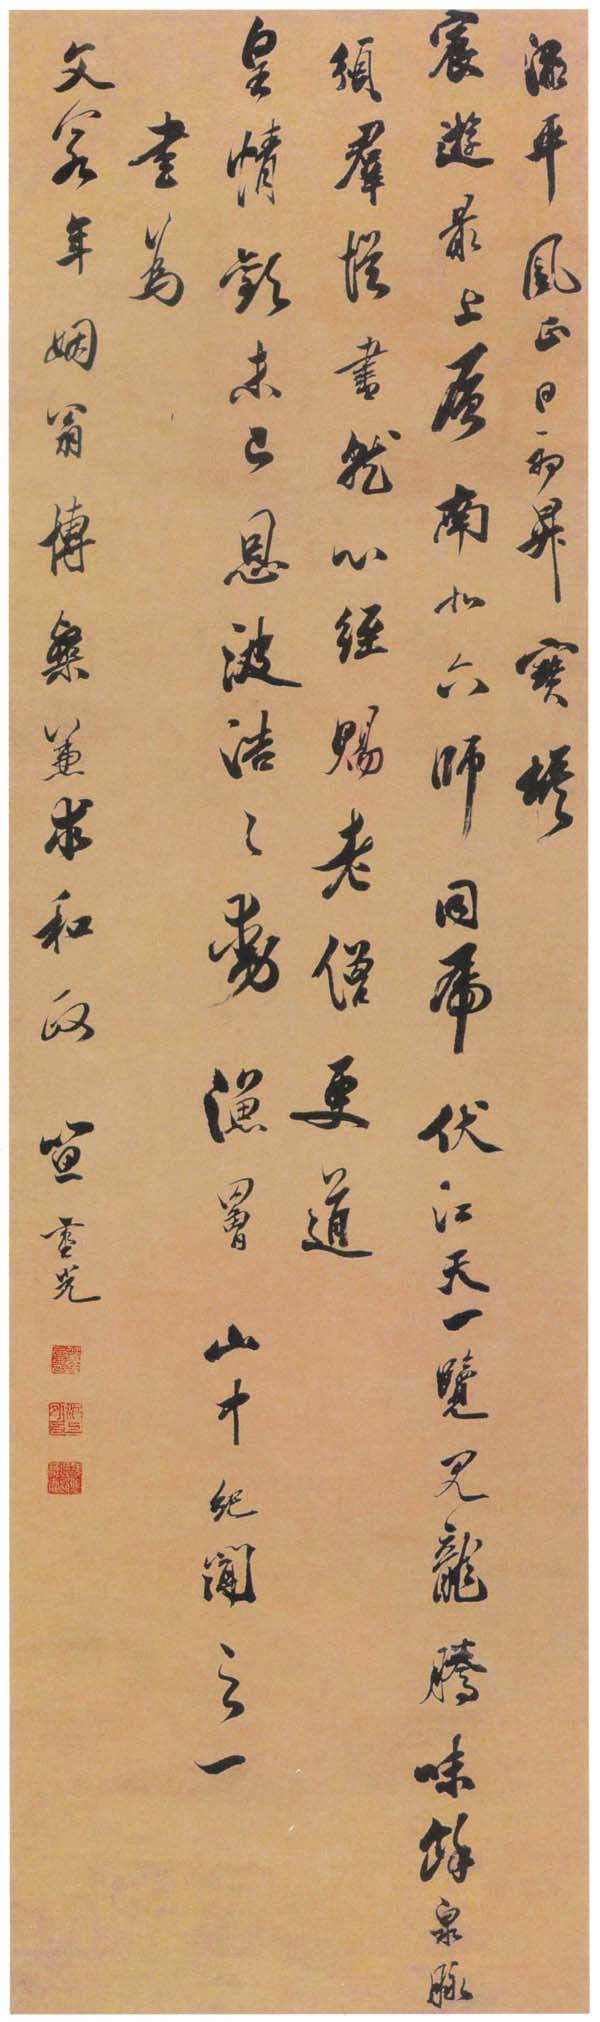 浪平風正日初昇寶塔
宸遊最上層南北六師同虎伏江天一覽見龍騰味餘泉脉
頒羣從書就心經賜老僧更道
皇情歡未已恩波浩〻動漁罾山中紀聞之一
書為
文客年姻翁博粲兼求和政笪重光